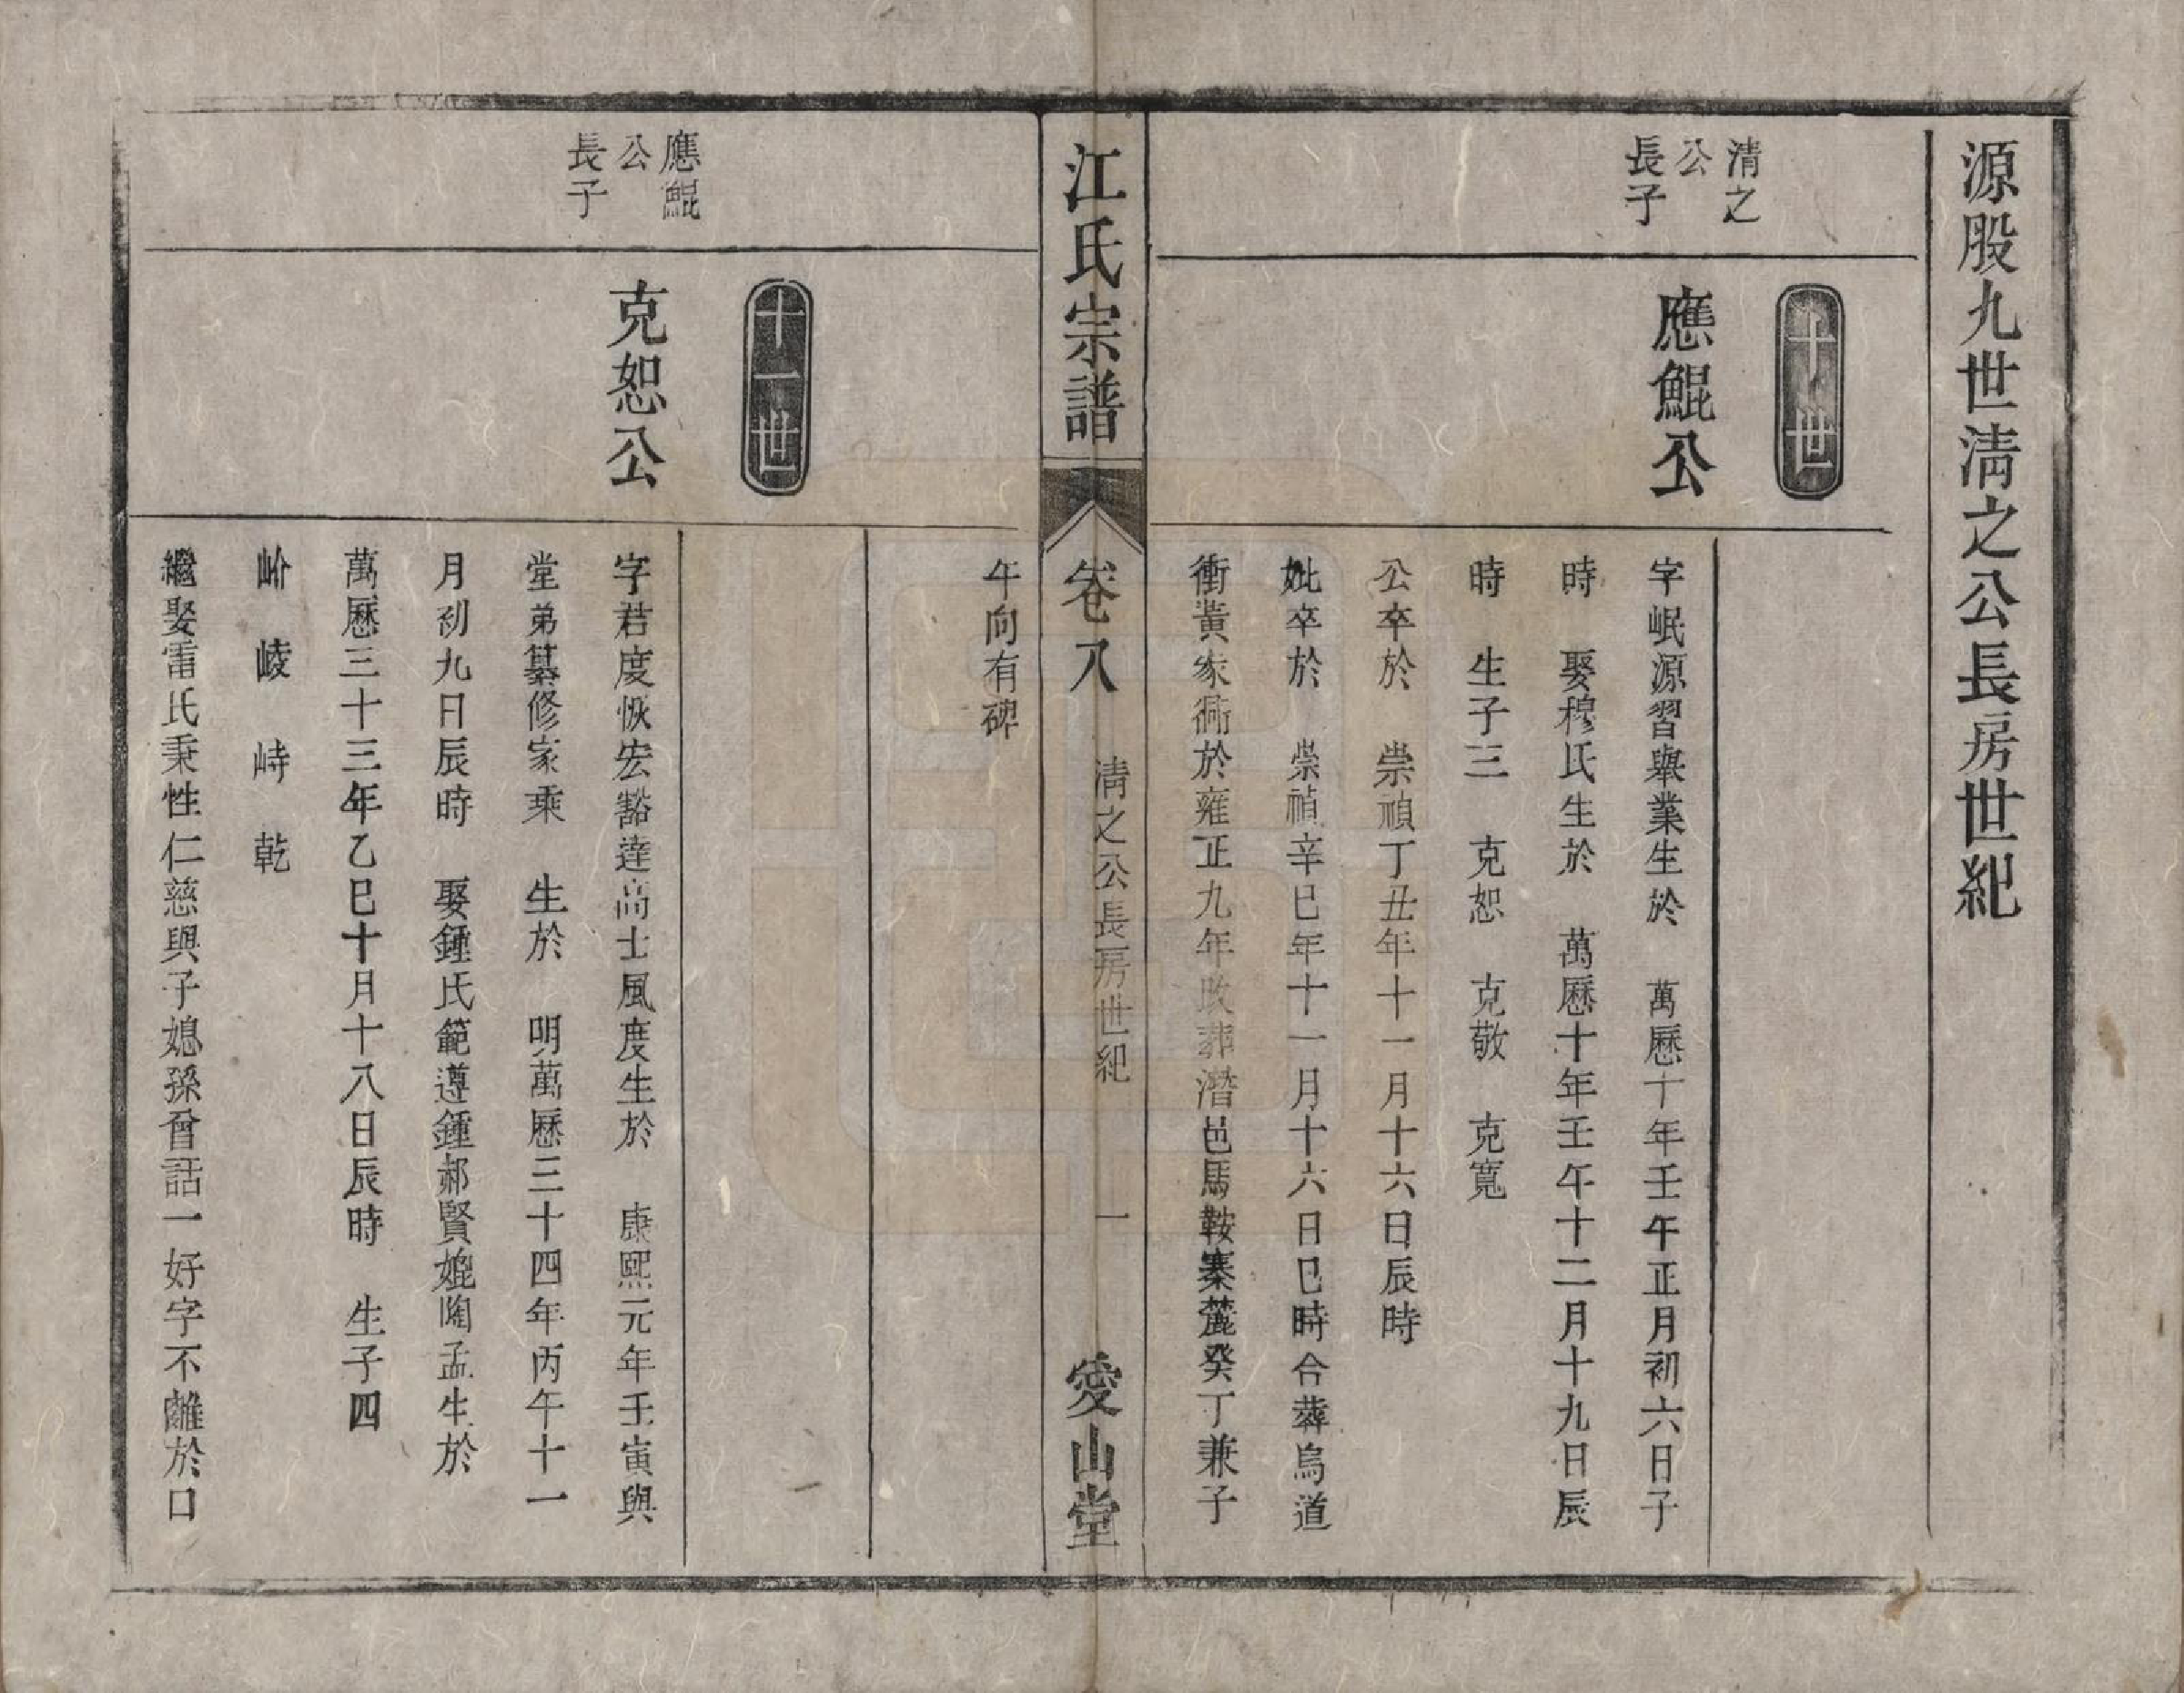 源股九世清之公長房世紀
十世
清之
公
長子
應鯤公
字岷源習舉業生於　萬曆十年壬午正月初六日子
時　娶穆氏生於　萬曆十年壬午十二月十九日辰
時　生子三　克恕　克敬　克寬
公卒於　崇禎丁丑年十一月十六日辰時
妣卒於　崇禎辛巳年十一月十六日巳時合葬烏道
衝黃家衕於雍正九年改葬潛邑馬鞍寨麓癸丁兼子
江氏宗譜
卷八
清之公長房世紀
一
愛山堂
午向有碑
十一世
應鯤
公
長子
克恕公
字君度恢宏豁達高士風度生於　康熙元年壬寅與
堂弟纂修家乘　生於　明萬曆三十四年丙午十一
月初九日辰時　娶鍾氏範遵鍾郝賢媲陶孟生於
萬曆三十三年乙巳十月十八日辰時　生子四
岭　崚　峙　乾
繼娶雷氏秉性仁慈與子媳孫曾話一好字不離於口